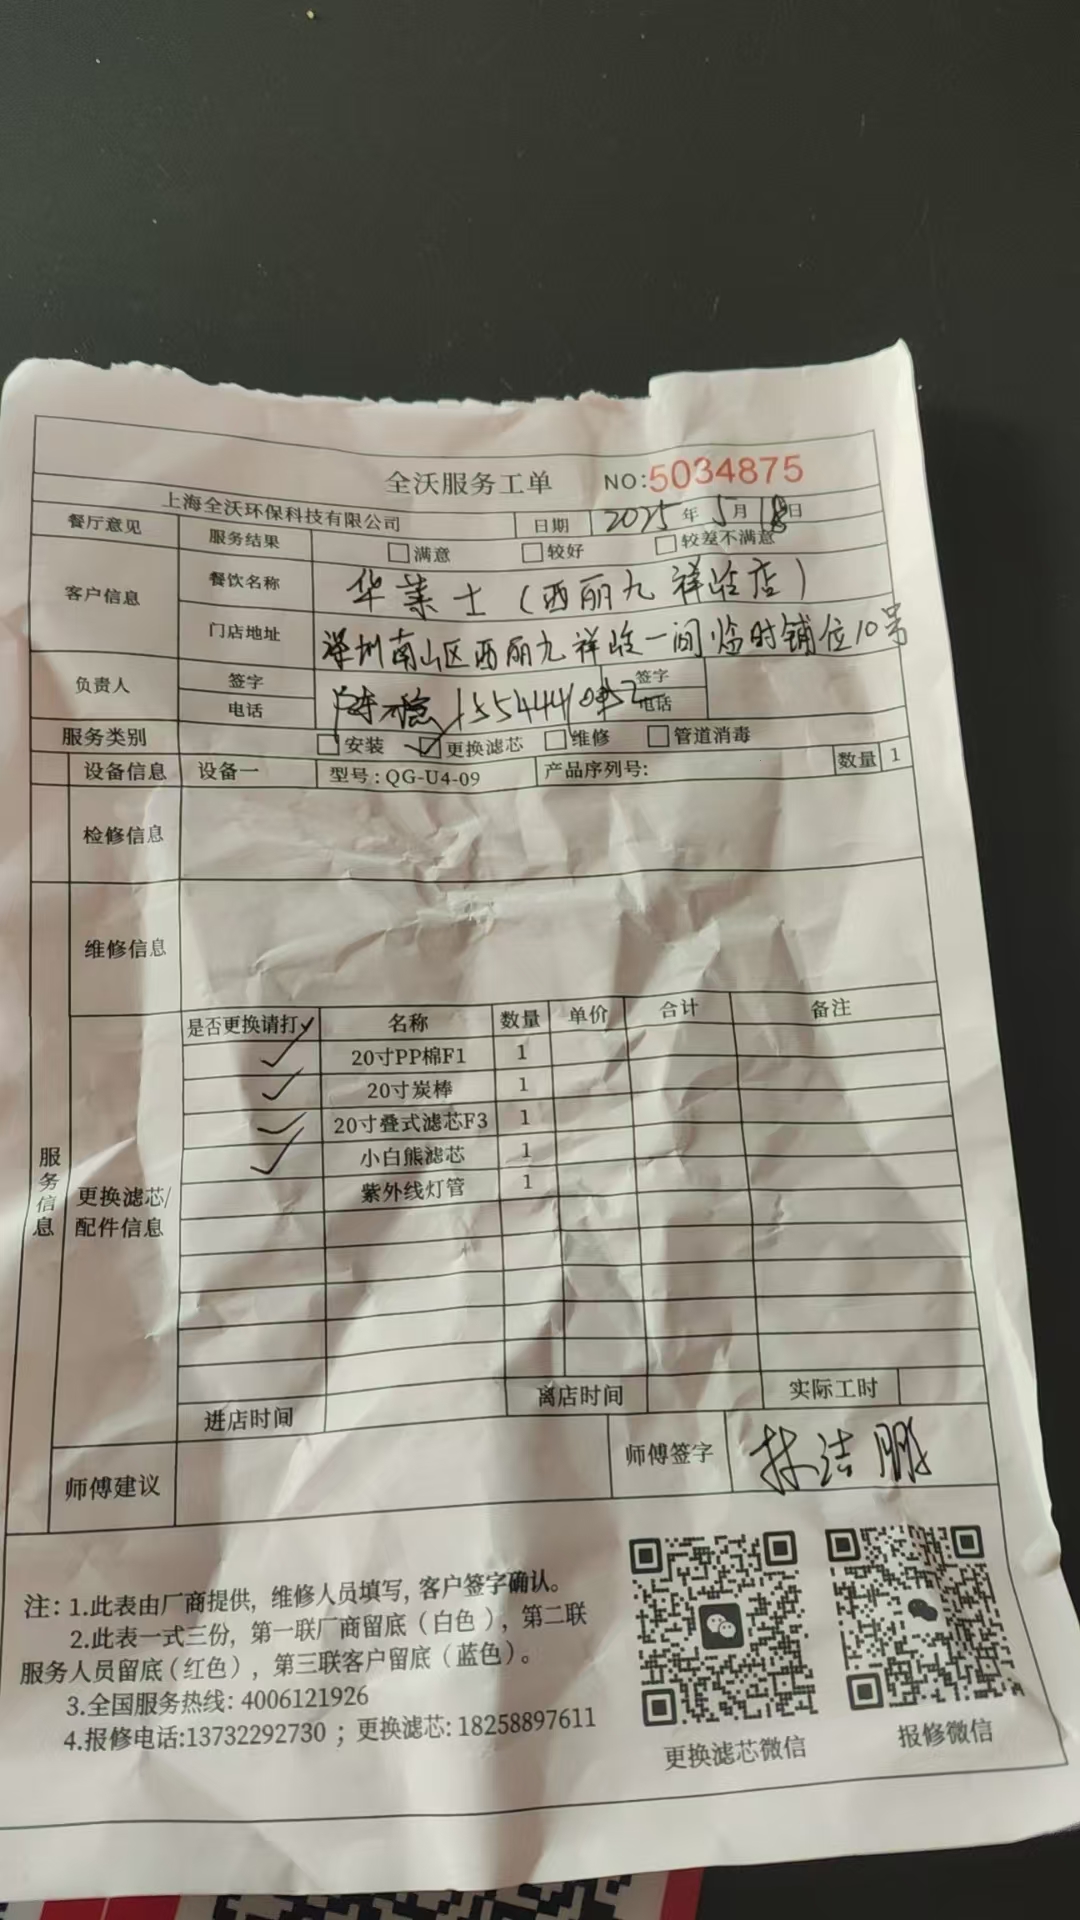 全沃服务工单 NO:5034875
上海全沃环保科技有限公司 日期 2025年5月18日
餐厅意见 服务结果 满意 较好 较差不满意
客户信息 餐饮名称 华莱士（西丽九祥岭店）
门店地址 深圳南山区西丽九祥岭一间临时铺位10号
负责人 签字 陈 签字
电话 电话
服务类别 安装 更换滤芯 维修 管道消毒
设备信息 设备一 型号：QG-U4-09 产品序列号: 数量 1
检修信息
维修信息
服务信息
更换滤芯/配件信息
是否更换请打✓ 名称 数量 单价 合计 备注
✓ 20寸PP棉F1 1
✓ 20寸炭棒 1
✓ 20寸叠式滤芯F3 1
✓ 小白熊滤芯 1
紫外线灯管 1
进店时间 离店时间 实际工时
师傅建议 师傅签字 林洁鹏
注：1.此表由厂商提供，维修人员填写，客户签字确认。
2.此表一式三份，第一联厂商留底（白色），第二联
服务人员留底（红色），第三联客户留底（蓝色）。
3.全国服务热线：4006121926
4.报修电话:13732292730 ；更换滤芯: 18258897611
更换滤芯微信 报修微信